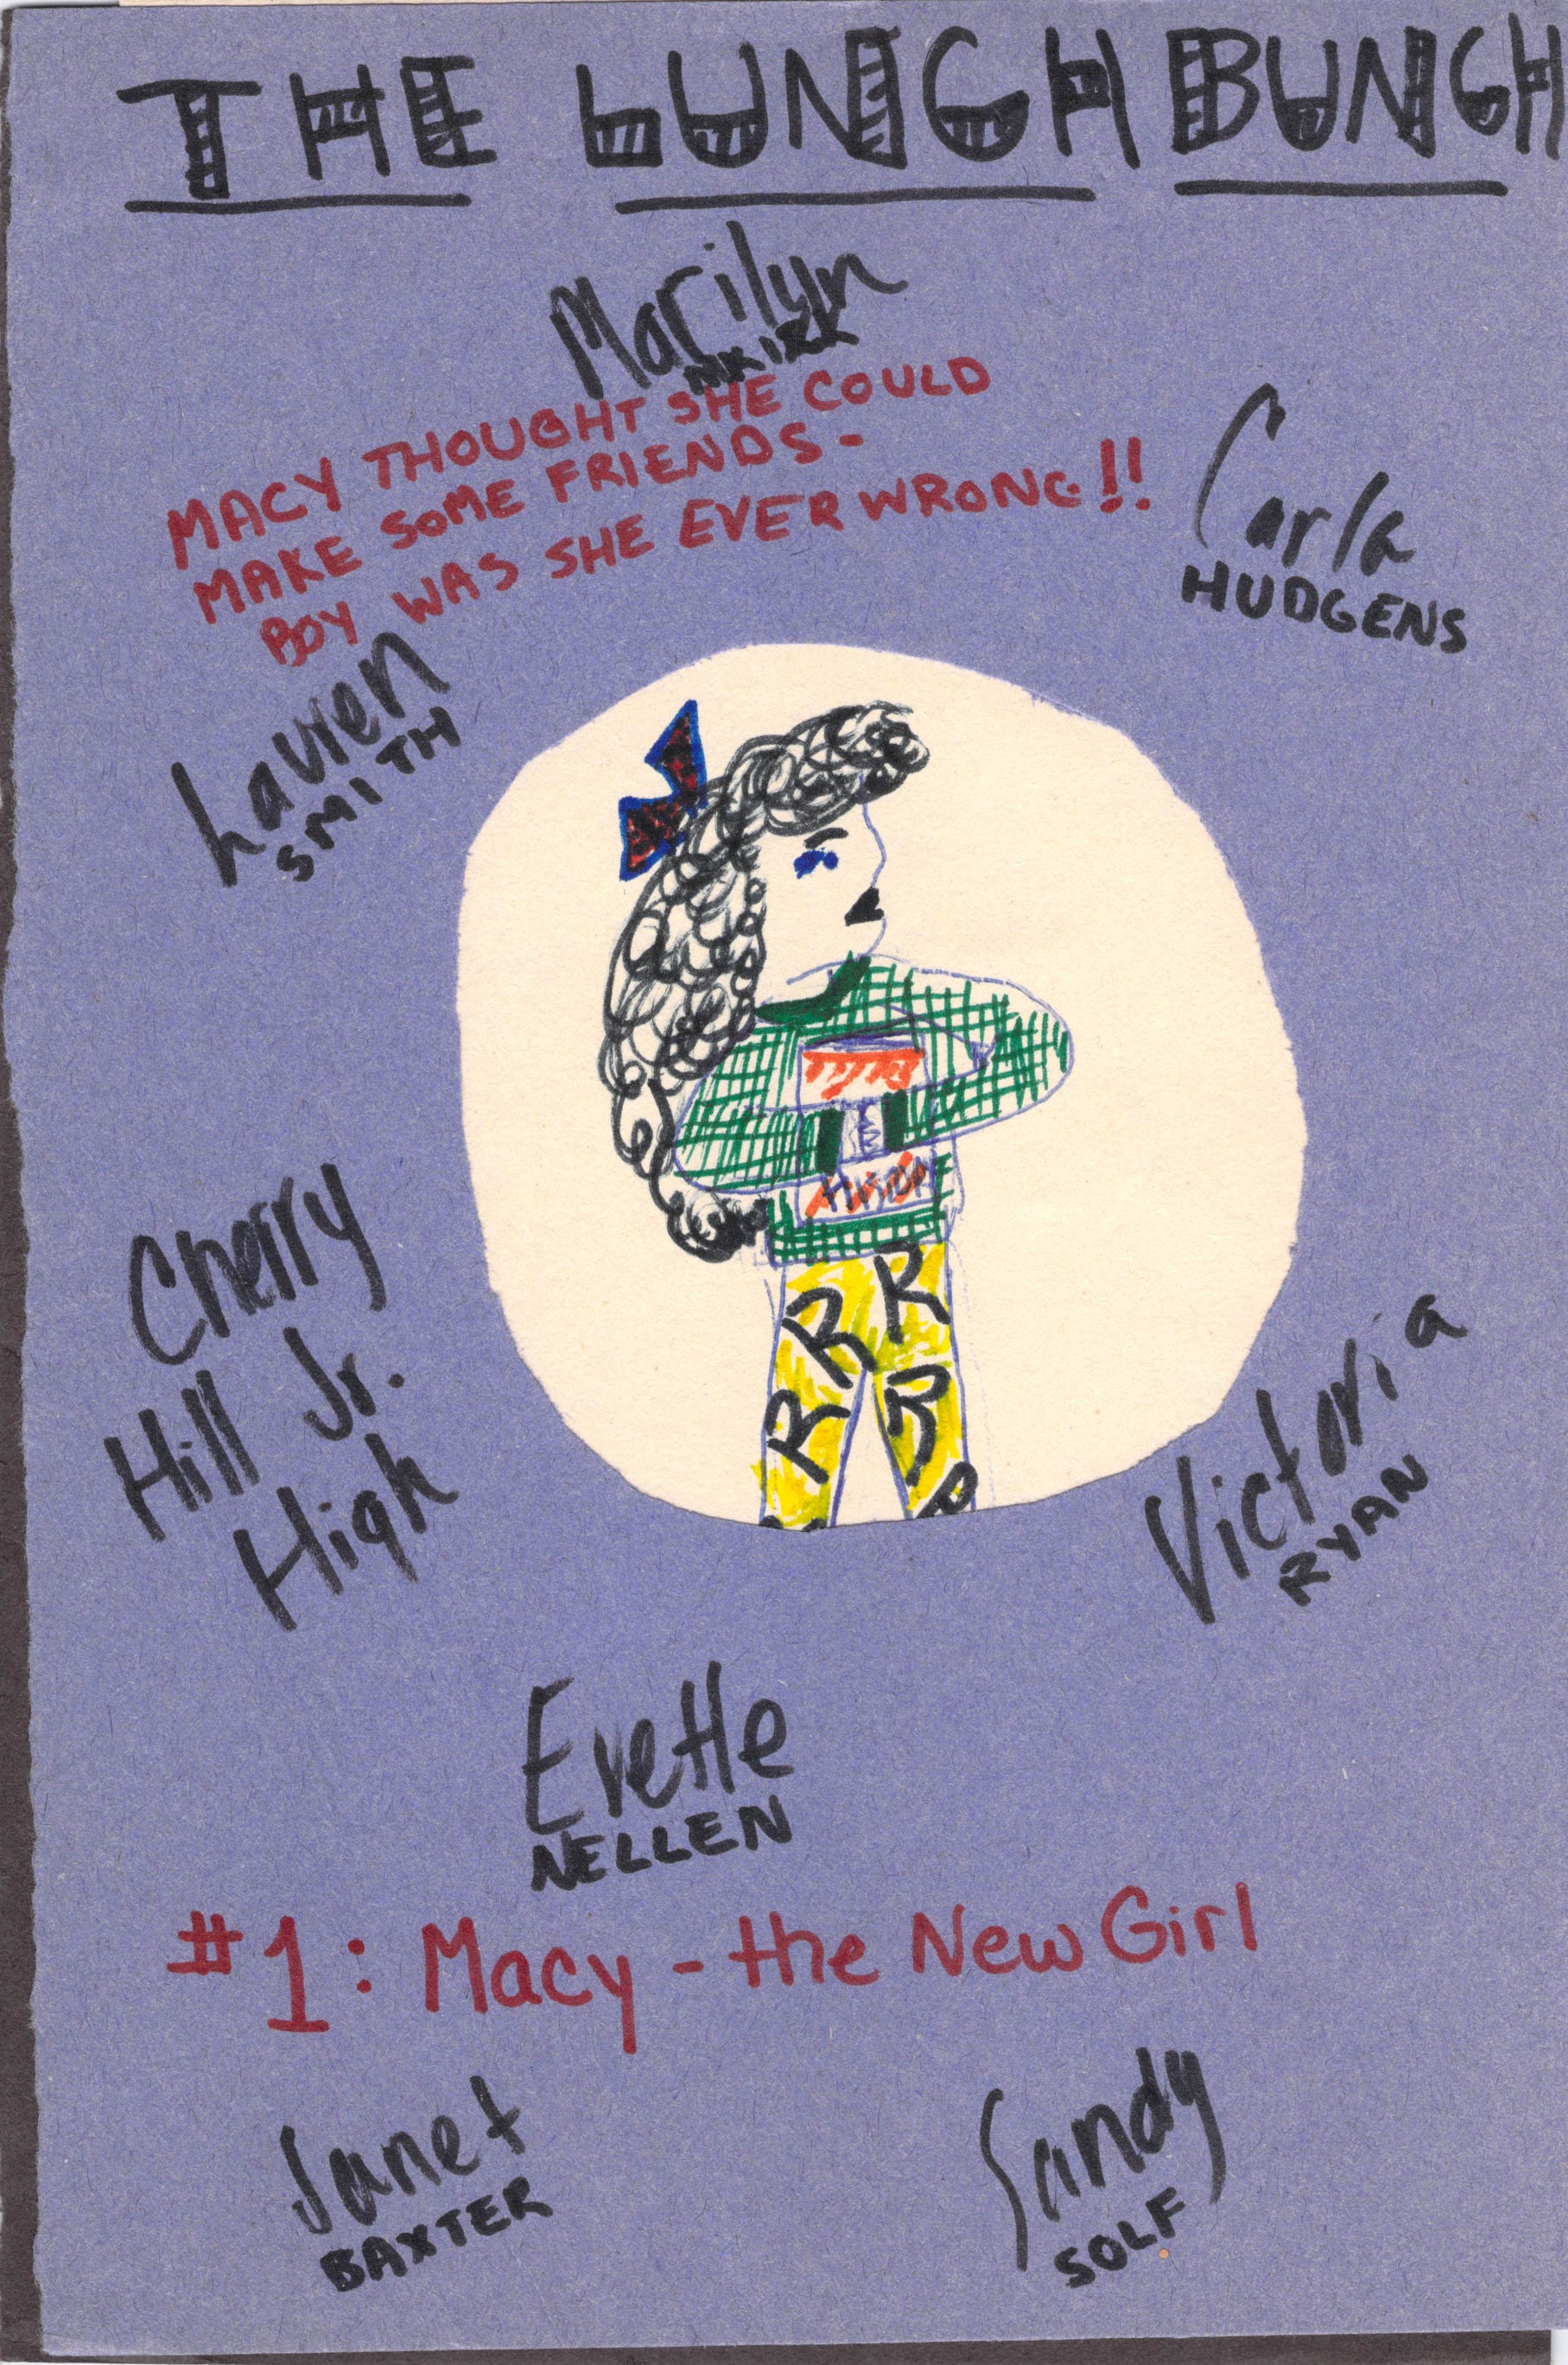 THE LUNCH BUNCH
Marilyn
MACY THOUGHT SHE COULD
MAKE SOME FRIENDS -
BOY WAS SHE EVER WRONG!!
Carla
HUDGENS
Lauren
SMITH
R R
R R
Cherry
Hill Jr.
High
Victoria
RYAN
Evette
NELLEN
#1: Macy - the New Girl
Janet
BAXTER
Sandy
SOLF